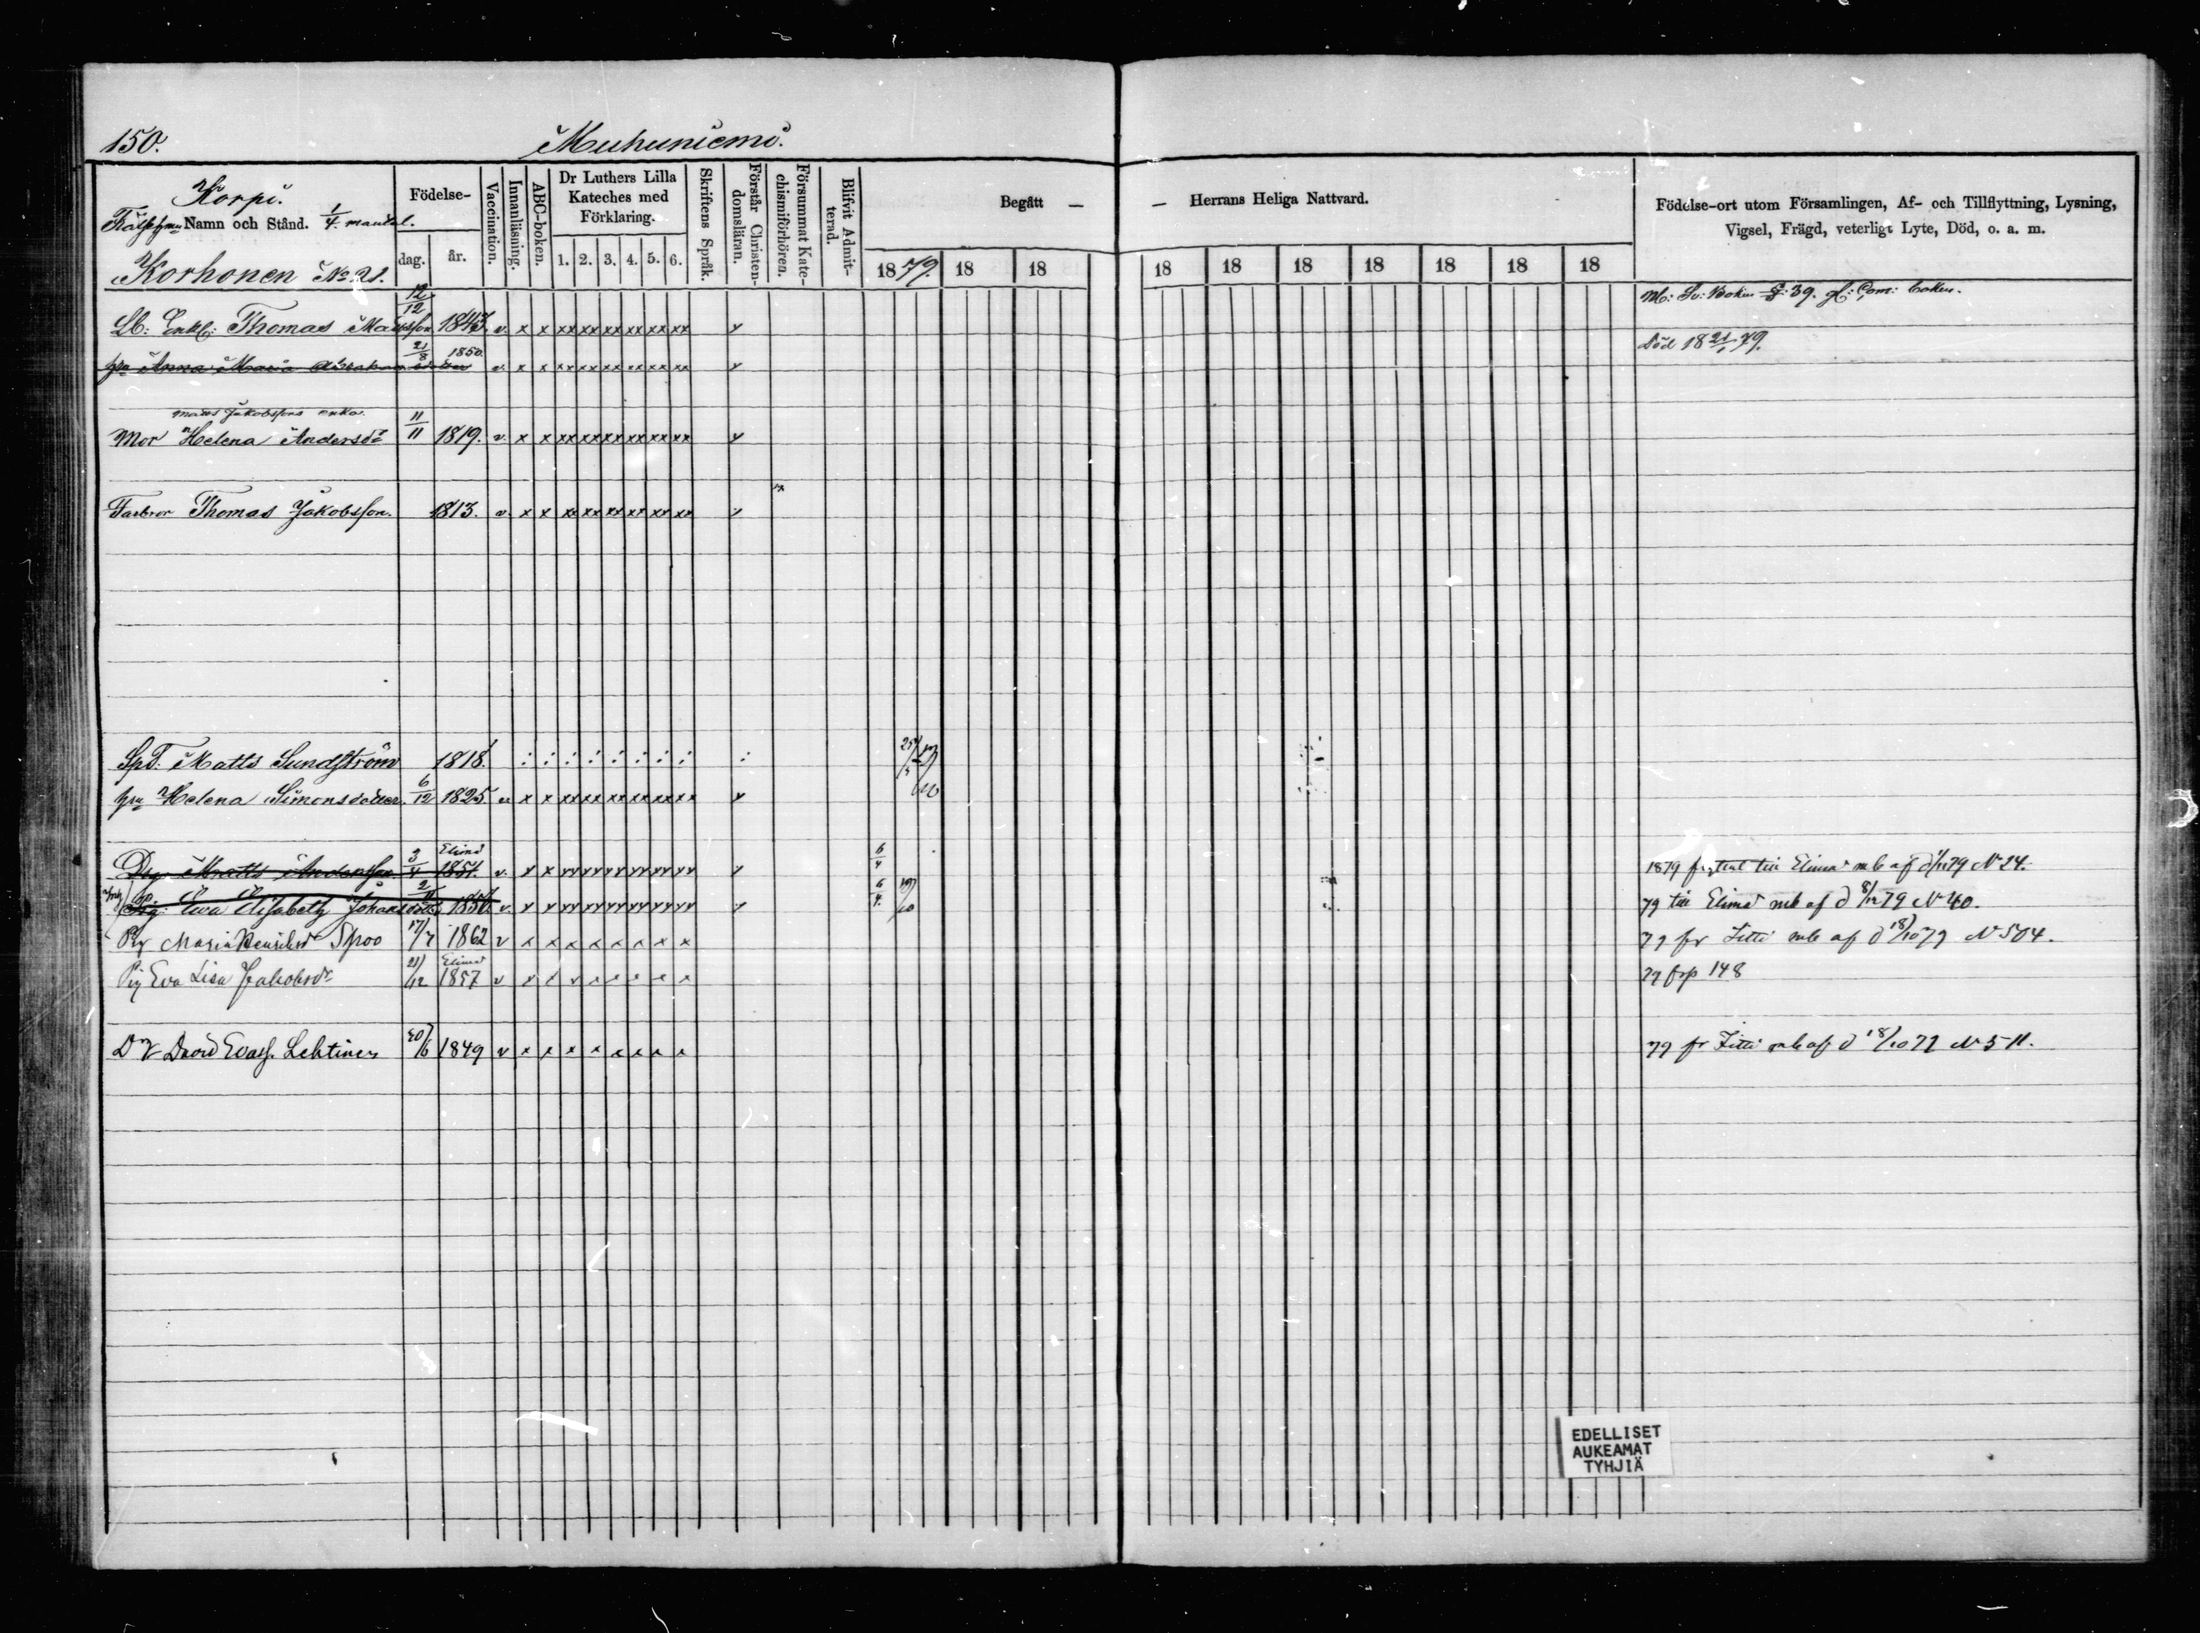 150. Muhuniemi.
Korpi.
Frälsehmn Namn och Stånd. 1/4 mantal.
Korhonen No 21.
Födelse-
dag. år.
Vaccination.
Innanläsning.
ABC-boken.
Dr Luthers Lilla
Kateches med
Förklaring.
1. 2. 3. 4. 5. 6.
Skriftens Språk.
Förstår Christen-
domsläran.
Försummat Kate-
chismiförhören.
Blifvit Admit-
terad.
Begått —
1879. 18 18
— Herrans Heliga Nattvard.
18 18 18 18 18 18 18
Födelse-ort utom Församlingen, Af- och Tillflyttning, Lysning,
Vigsel, Frägd, veterligt Lyte, Död, o. a. m.
Lb: Enkl: Thomas Mattsson 12/12 1843. v. x x xx xx xx xx xx xx v
hu Anna Maria Abrahamsdotter 21/8 1850. v. x x xx xx xx xx xx xx v Död 18 21/1 79.
Matts Jakobssons enka.
Mor Helena Andersdr 11/11 1819. v. x x xx xx xx xx xx xx v
Farbror Thomas Jakobsson. 1813. v. x x xx xx xx xx xx xx v
Spd. Matts Sundström 1818. 25/5
hu Helena Simonsdotter. 6/12 1825 v x x xx xx xx xx xx xx v
Drg. Matts Andersson 3/4 Elimä 1851. v. x x v 6/4 1879 till Elimä mb af d 1/11 79 No 24.
Pig. Eva Elisabeth Johansdotter 2/11 1850. v. x x v 6/4. 19/10 79 till Elimä mb af d 8/12 79 No 40.
Pig Maria Henriksdr Spoo 17/7 1862 v x x x x x x x x 79 fr Itti mb af d 18/10 79 No 504.
Pig Eva Lisa Jakobsdr 21/12 Elimä 1857 v 79 frp 148
Dr David Evass. Lehtinen 20/6 1849 v x x x x x x x x 79 fr Itti mb af d 18/10 79 No 511.
EDELLISET
AUKEAMAT
TYHJIÄ